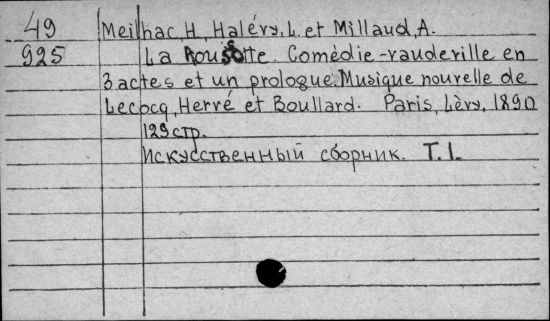 49 Meilhac, H, Halévy, L. et Millaud, A.
925 La Roussotte. Comédie-vaudeville en
3 actes et un prologue. Musique nouvelle de
Lecocq, Hervé et Boullard. Paris, Lèvy, 1890
129 стр.
Искусственный сборник. Т. 1.